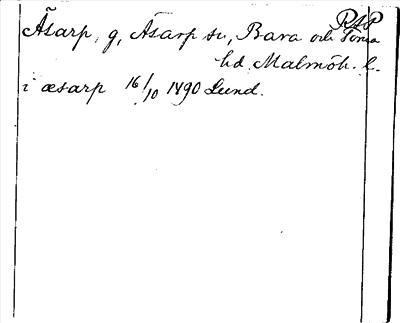 RAP
Åsarp, g, Åsarp sn, Bara och Torna
hd. Malmöh. l.
i æsarp 16/10 1490 Lund.